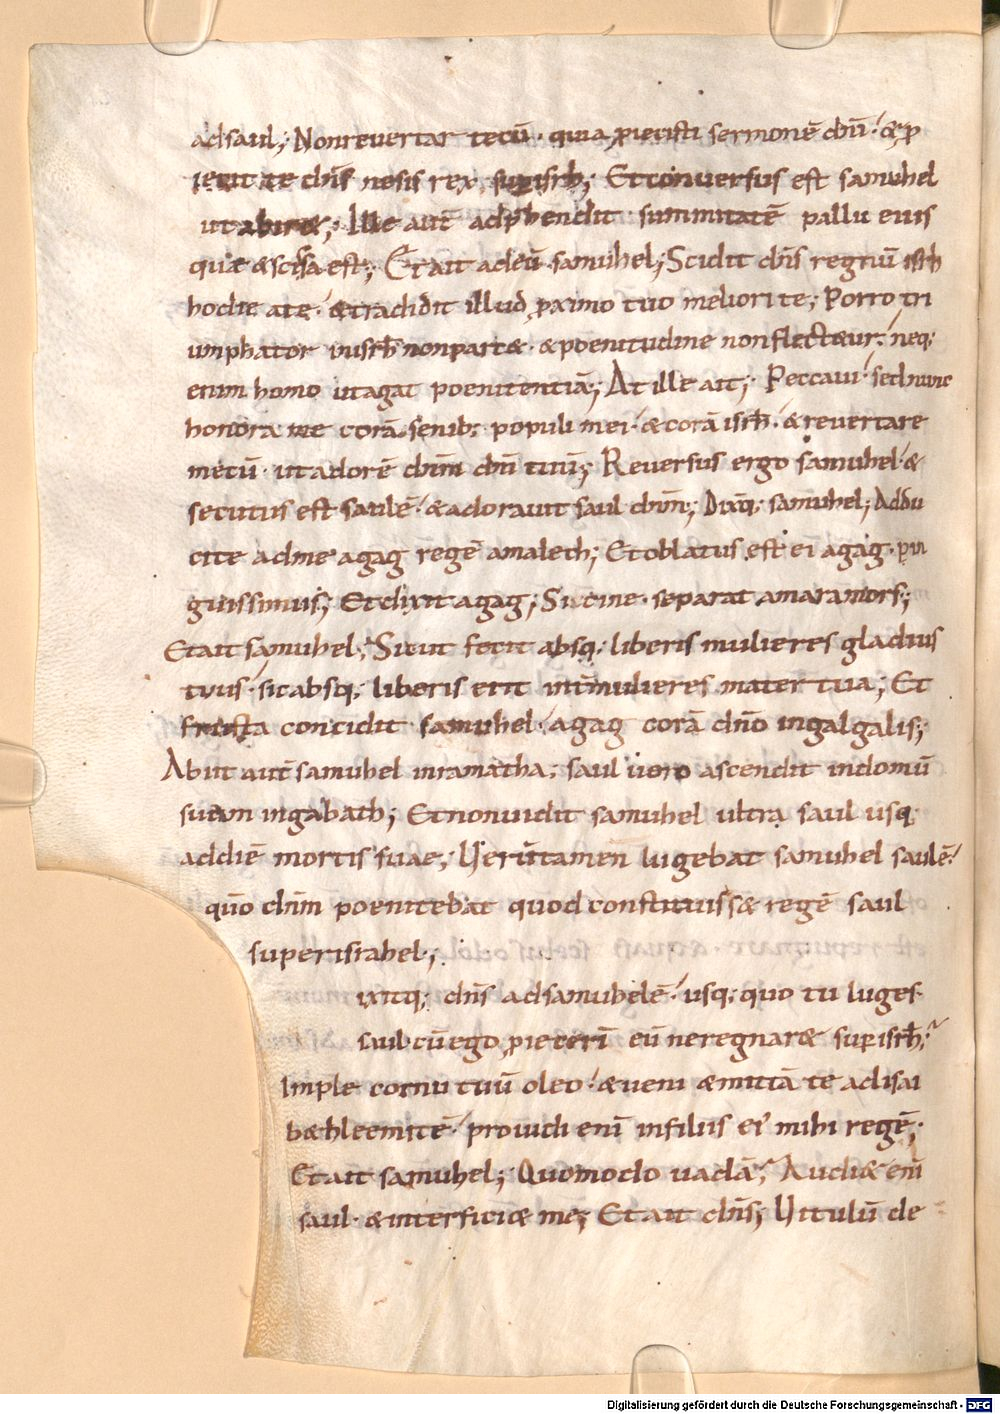 adsaul; Non revertar tecū· quia ꝓiecisti sermonē dn̄i· & ꝓ
iecit te dn̄s ne sis rex sup isrl̄; Et conversus est samuhel
ut abir&; Ille aut̄ adp̄hendit summitatē pallii eius
quæ & scissa est; Et ait ad eū samuhel; Scidit dn̄s regnū isrl̄
hodie a te· & tradidit illud ꝓximo tuo meliori te; Porro tri
umphator in isrl̄ non parc&· & poenitudine non flect&ur· neq;
enim homo ut agat poenitentiā; At ille ait; Peccavi· sed nunc
honora me corā senib; populi mei· & corā isrl̄· & revertere
mecū· ut adorē dn̄m dm̄ tuū; Reversus ergo samuhel· &
secutus est saulē· & adoravit saul dn̄m; Dixitq; samuhel; Addu
cite ad me agag regē amalech; Et oblatus est ei agag· pin
guissimus; Et dixit agag; Siccine separat amara mors;
Et ait samuhel; Sicut fecit absq; liberis mulieres gladius
tuus· sic absq; liberis erit int̄ mulieres mater tua; Et
frusta concidit samuhel· agag corā dn̄o in galgalis;
Abiit aut̄ samuhel in ramatha; saul uero ascendit in domū
suam in gabath; Et non uidit samuhel ultra saul usq;
ad diē mortis suae; Uerūtamen lugebat samuhel saulē·
quō dn̄m poenitebat quod constituiss& regē saul
super israhel;
ixitq; dn̄s ad samuhelē· usq; quo tu luges
saul· cū ego ꝓiecerī eū ne regnar& sup isrl̄;
Imple cornu tuū oleo· & veni & mittā te ad isai
b&hleemitē· providi enī in filiis ei' mihi regē;
Et ait samuhel; Quomodo uadā; Audi& enī
saul· & interfici& me; Et ait dn̄s; Uitulū de
Digitalisierung gefördert durch die Deutsche Forschungsgemeinschaft - DFG